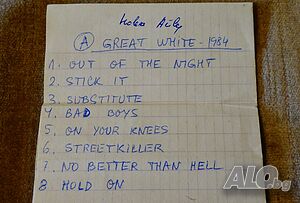 Ⓐ GREAT WHITE - 1984
1. OUT OF THE NIGHT
2. STICK IT
3. SUBSTITUTE
4. BAD BOYS
5. ON YOUR KNEES
6. STREETKILLER
7. NO BETTER THAN HELL
8. HOLD ON
ALO.bg